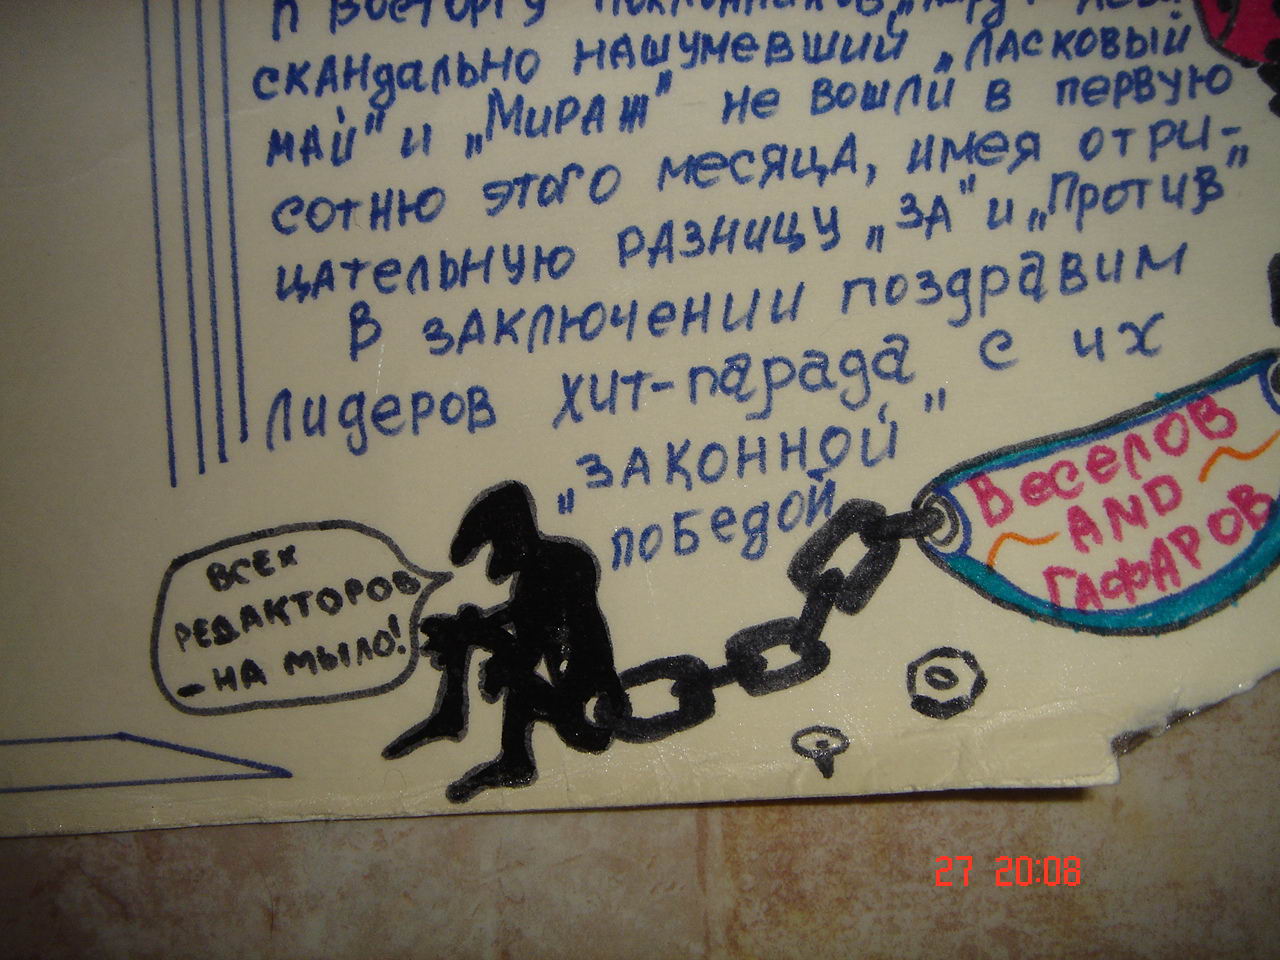 к восторгу поклонников,
скандально нашумевший „Ласковый
май" и „Мираж" не вошли в первую
сотню этого месяца, имея отри-
цательную разницу „За" и „Против"
В заключении поздравим
лидеров хит-парада с их
„законной"
победой
Веселов
AND
Гафаров
ВСЕХ
РЕДАКТОРОВ
- НА МЫЛО!
27 20:08